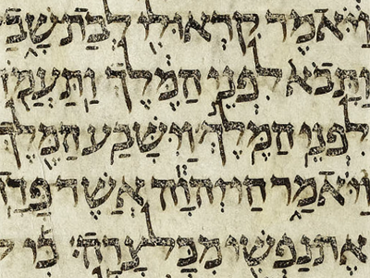 וַיֹּאמֶר קִרְאוּ לִי לְבַת שָׁבַ
וַתָּבֹא לִפְנֵי הַמֶּלֶךְ וַתַּעֲמֹ
לִפְנֵי הַמֶּלֶךְ וַיִּשָּׁבַע הַמֶּלֶךְ
וַיֹּאמַר חַי יְהוָה אֲשֶׁר פָּדָה
אֶת נַפְשִׁי מִכָּל צָרָה׃ כִּי